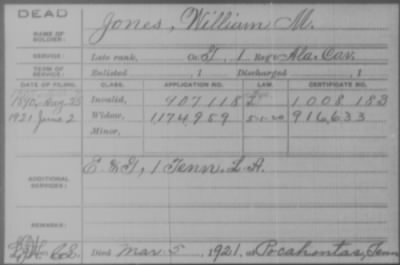 DEAD
NAME OF SOLDIER: Jones, William M.
SERVICE: Late rank, Co. G, 1 Reg't Ala. Cav.
TERM OF SERVICE: Enlisted , 1 Discharged , 1
DATE OF FILING. CLASS. APPLICATION NO. LAW. CERTIFICATE NO.
1890, Aug. 25 Invalid, 907 118 1008 183
1921 June 2 Widow, 1174,959 5-1-20 916,633
Minor,
ADDITIONAL SERVICES: E & G, 1 Tenn. L. A.
REMARKS:
Died Mar. 5, 1921, at Pocahontas, Tenn